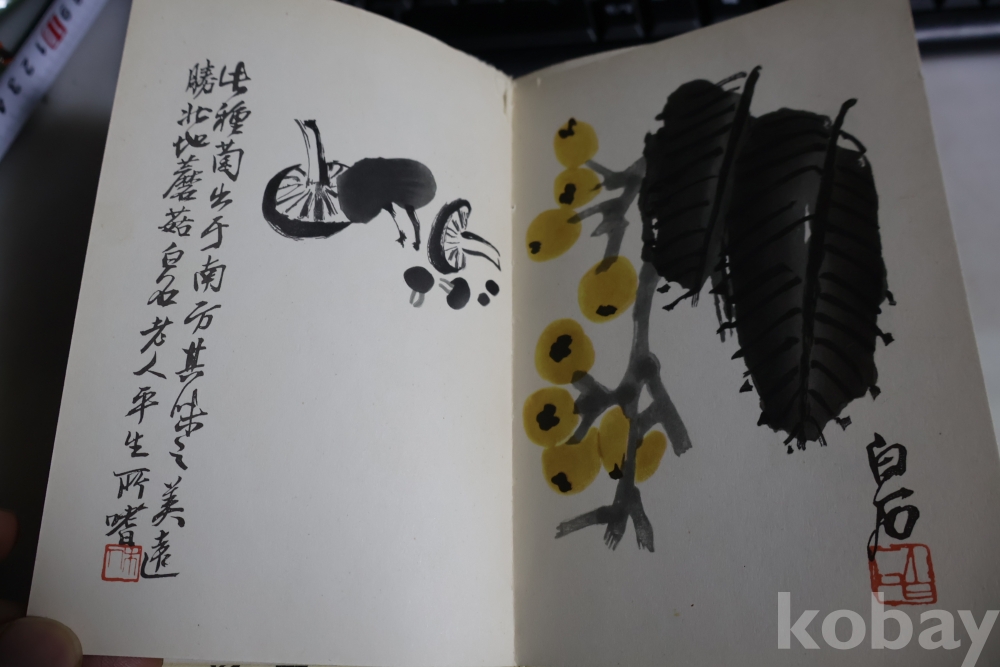 此種菌出于南方其味之美遠
勝北地蘑菇白石老人平生所嗜
白石
kobay
1 2 3 4